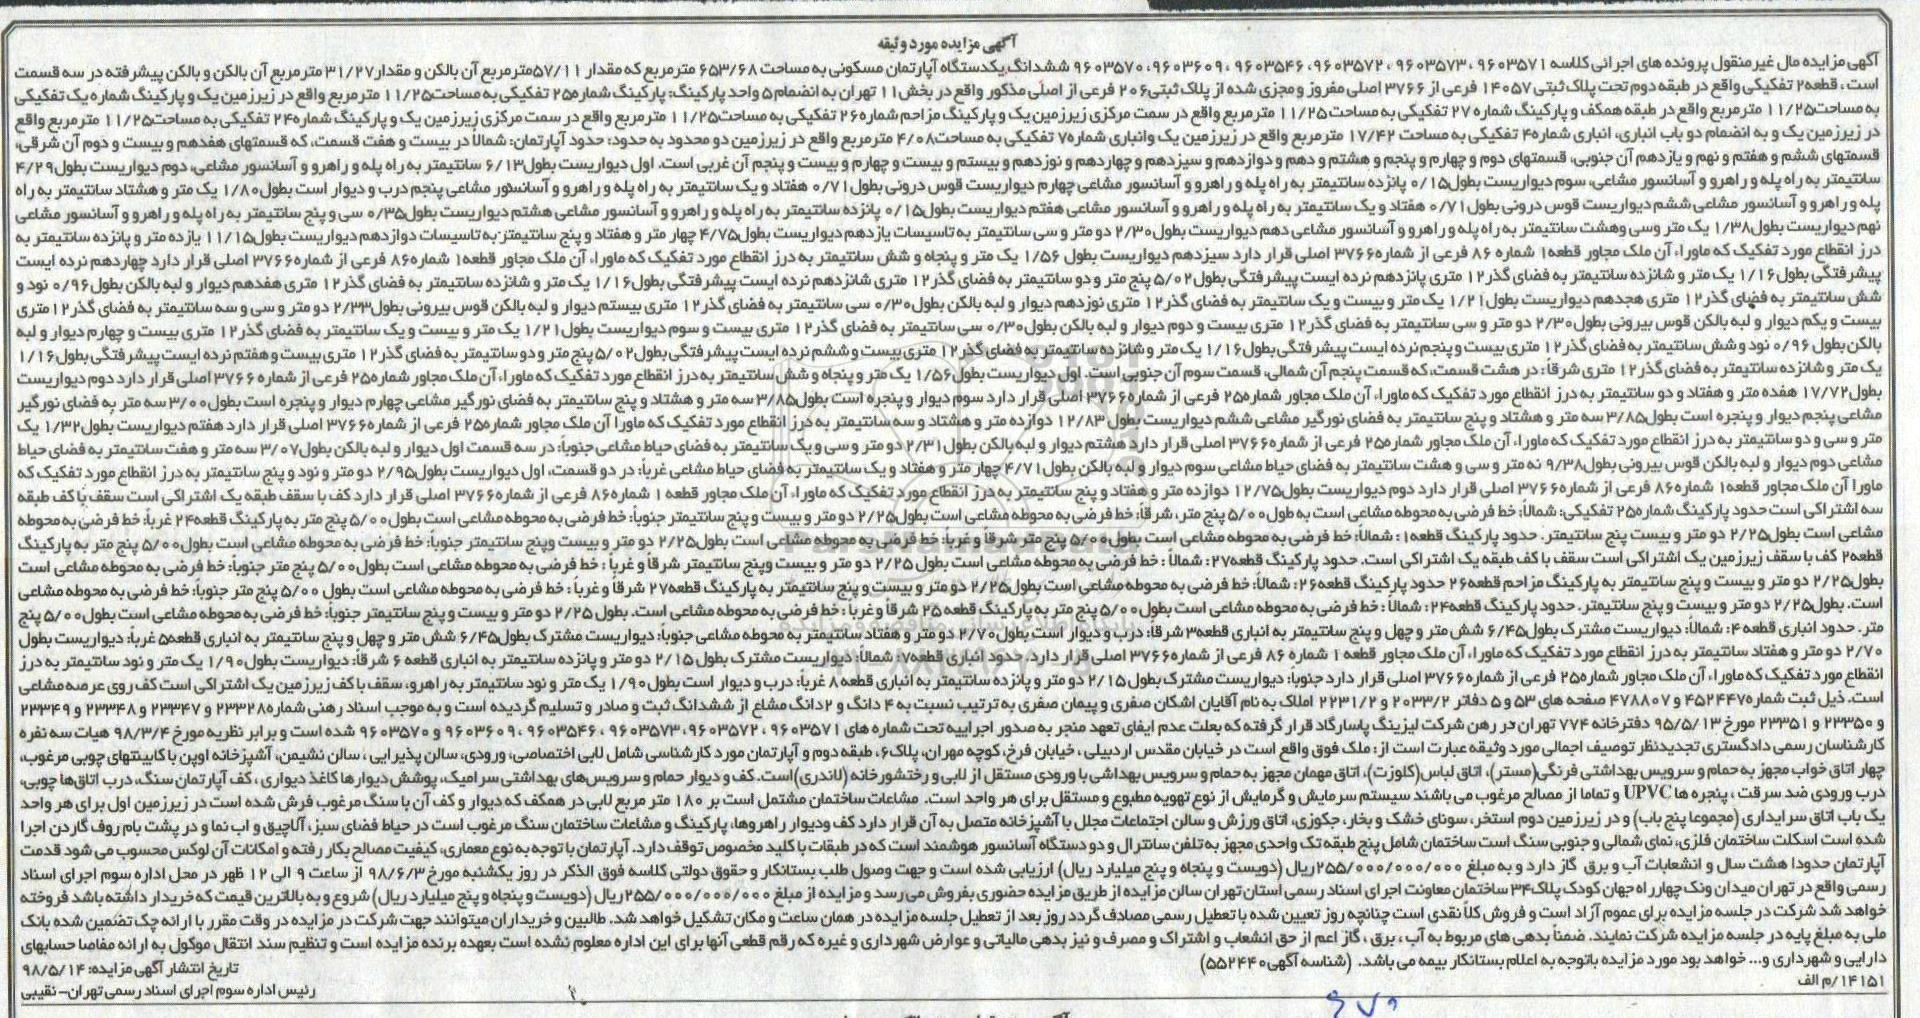 آگهی مزایده مورد وثیقه
آگهی مزایده مال غیرمنقول پرونده های اجرائی کلاسه ۹۶۰۳۵۷۱، ۹۶۰۳۵۷۳، ۹۶۰۳۵۷۲، ۹۶۰۳۵۴۶، ۹۶۰۳۶۰۹، ۹۶۰۳۵۷۰ ششدانگ یکدستگاه آپارتمان مسکونی به مساحت ۶۵۳/۶۸ مترمربع که مقدار ۵۷/۱۱مترمربع آن بالکن و مقدار۳۱/۲۷ مترمربع آن بالکن و بالکن پیشرفته در سه قسمت
است، قطعه۲ تفکیکی واقع در طبقه دوم تحت پلاک ثبتی ۱۴۰۵۷ فرعی از ۳۷۶۶ اصلی مفروز و مجزی شده از پلاک ثبتی۲۰۶ فرعی از اصلی مذکور واقع در بخش۱۱ تهران به انضمام۵ واحد پارکینگ: پارکینگ شماره۲۵ تفکیکی به مساحت۱۱/۲۵ مترمربع واقع در زیرزمین یک و پارکینگ شماره یک تفکیکی
به مساحت۱۱/۲۵ مترمربع واقع در طبقه همکف و پارکینگ شماره ۲۷ تفکیکی به مساحت۱۱/۲۵ مترمربع واقع در سمت مرکزی زیرزمین یک و پارکینگ مزاحم شماره۲۶ تفکیکی به مساحت۱۱/۲۵ مترمربع واقع در سمت مرکزی زیرزمین یک و پارکینگ شماره۲۴ تفکیکی به مساحت۱۱/۲۵ مترمربع واقع
در زیرزمین یک و به انضمام دو باب انباری، انباری شماره۴ تفکیکی به مساحت ۱۷/۴۲ مترمربع واقع در زیرزمین یک وانباری شماره۷ تفکیکی به مساحت۴/۰۸ مترمربع واقع در زیرزمین دو محدود به حدود: حدود آپارتمان: شمالاً در بیست و هفت قسمت، که قسمتهای هفدهم و بیست و دوم آن شرقی،
قسمتهای ششم و هفتم و نهم و یازدهم آن جنوبی، قسمتهای دوم و چهارم و پنجم و هشتم و دهم و دوازدهم و سیزدهم و چهاردهم و نوزدهم و بیستم و بیست و چهارم و بیست و پنجم آن غربی است. اول دیواریست بطول۶/۱۳ سانتیمتر به راه پله و راهرو و آسانسور مشاعی، دوم دیواریست بطول۴/۲۹
سانتیمتر به راه پله و راهرو و آسانسور مشاعی، سوم دیواریست بطول۰/۱۵ پانزده سانتیمتر به راه پله و راهرو و آسانسور مشاعی چهارم دیواریست قوس درونی بطول۰/۷۱ هفتاد و یک سانتیمتر به راه پله و راهرو و آسانسور مشاعی پنجم درب و دیوار است بطول۱/۸۰ یک متر و هشتاد سانتیمتر به راه
پله و راهرو و آسانسور مشاعی ششم دیواریست قوس درونی بطول۰/۷۱ هفتاد و یک سانتیمتر به راه پله و راهرو و آسانسور مشاعی هفتم دیواریست بطول۰/۱۵ پانزده سانتیمتر به راه پله و راهرو و آسانسور مشاعی هشتم دیواریست بطول۰/۳۵ سی و پنج سانتیمتر به راه پله و راهرو و آسانسور مشاعی
نهم دیواریست بطول۱/۳۸ یک متر وسی وهشت سانتیمتر به راه پله و راهرو و آسانسور مشاعی دهم دیواریست بطول۲/۳۰ دو متر و سی سانتیمتر به تاسیسات یازدهم دیواریست بطول۴/۷۵ چهار متر و هفتاد و پنج سانتیمتر به تاسیسات دوازدهم دیواریست بطول۱۱/۱۵ یازده متر و پانزده سانتیمتر به
درز انقطاع مورد تفکیک که ماوراء آن ملک مجاور قطعه۱ شماره ۸۶ فرعی از شماره۳۷۶۶ اصلی قرار دارد سیزدهم دیواریست بطول ۱/۵۶ یک متر و پنجاه و شش سانتیمتر به درز انقطاع مورد تفکیک که ماوراء آن ملک مجاور قطعه۱ شماره۸۶ فرعی از شماره۳۷۶۶ اصلی قرار دارد چهاردهم نرده ایست
پیشرفتگی بطول۱/۱۶ یک متر و شانزده سانتیمتر به فضای گذر۱۲ متری پانزدهم نرده ایست پیشرفتگی بطول۵/۰۲ پنج متر و دو سانتیمتر به فضای گذر۱۲ متری شانزدهم نرده ایست پیشرفتگی بطول۱/۱۶ یک متر و شانزده سانتیمتر به فضای گذر۱۲ متری هفدهم دیوار و لبه بالکن بطول۰/۹۶ نود و
شش سانتیمتر به فضای گذر۱۲ متری هجدهم دیواریست بطول۱/۲۱ یک متر و بیست و یک سانتیمتر به فضای گذر۱۲ متری نوزدهم دیوار و لبه بالکن بطول۰/۳۰ سی سانتیمتر به فضای گذر۱۲ متری بیستم دیوار و لبه بالکن قوس بیرونی بطول۲/۳۳ دو متر و سی و سه سانتیمتر به فضای گذر۱۲ متری
بیست و یکم دیوار و لبه بالکن قوس بیرونی بطول۲/۳۰ دو متر و سی سانتیمتر به فضای گذر۱۲ متری بیست و دوم دیوار و لبه بالکن بطول۰/۳۰ سی سانتیمتر به فضای گذر۱۲ متری بیست و سوم دیواریست بطول۱/۲۱ یک متر و بیست و یک سانتیمتر به فضای گذر۱۲ متری بیست و چهارم دیوار و لبه
بالکن بطول ۰/۹۶ نود و شش سانتیمتر به فضای گذر۱۲ متری بیست و پنجم نرده ایست پیشرفتگی بطول۱/۱۶ یک متر و شانزده سانتیمتر به فضای گذر۱۲ متری بیست و ششم نرده ایست پیشرفتگی بطول۵/۰۲ پنج متر و دو سانتیمتر به فضای گذر۱۲ متری بیست و هفتم نرده ایست پیشرفتگی بطول۱/۱۶
یک متر و شانزده سانتیمتر به فضای گذر۱۲ متری شرقاً: در هشت قسمت، که قسمت پنجم آن شمالی، قسمت سوم آن جنوبی است. اول دیواریست بطول۱/۵۶ یک متر و پنجاه و شش سانتیمتر به درز انقطاع مورد تفکیک که ماوراء آن ملک مجاور شماره۲۵ فرعی از شماره ۳۷۶۶ اصلی قرار دارد دوم دیواریست
بطول۱۷/۷۲ هفده متر و هفتاد و دو سانتیمتر به درز انقطاع مورد تفکیک که ماوراء آن ملک مجاور شماره۲۵ فرعی از شماره۳۷۶۶ اصلی قرار دارد سوم دیوار و پنجره است بطول۳/۸۵ سه متر و هشتاد و پنج سانتیمتر به فضای نورگیر مشاعی چهارم دیوار و پنجره است بطول۳/۰۰ سه متر به فضای نورگیر
مشاعی پنجم دیوار و پنجره است بطول۳/۸۵ سه متر و هشتاد و پنج سانتیمتر به فضای نورگیر مشاعی ششم دیواریست بطول ۱۲/۸۳ دوازده متر و هشتاد و سه سانتیمتر به درز انقطاع مورد تفکیک که ماورا آن ملک مجاور شماره۲۵ فرعی از شماره۳۷۶۶ اصلی قرار دارد هفتم دیواریست بطول۱/۳۲ یک
متر و سی و دو سانتیمتر به درز انقطاع مورد تفکیک که ماوراء آن ملک مجاور شماره۲۵ فرعی از شماره۳۷۶۶ اصلی قرار دارد هشتم دیوار و لبه بالکن بطول ۲/۳۱ دو متر و سی و یک سانتیمتر به فضای حیاط مشاعی جنوباً: در سه قسمت اول دیوار و لبه بالکن بطول۳/۰۷ سه متر و هفت سانتیمتر به فضای حیاط
مشاعی دوم دیوار و لبه بالکن قوس بیرونی بطول۹/۳۸ نه متر و سی و هشت سانتیمتر به فضای حیاط مشاعی سوم دیوار و لبه بالکن بطول ۴/۷۱ چهار متر و هفتاد و یک سانتیمتر به فضای حیاط مشاعی غرباً: در دو قسمت، اول دیواریست بطول۲/۹۵ دو متر و نود و پنج سانتیمتر به درز انقطاع مورد تفکیک که
ماورا آن ملک مجاور قطعه۱ شماره۸۶ فرعی از شماره۳۷۶۶ اصلی قرار دارد دوم دیواریست بطول۱۲/۷۵ دوازده متر و هفتاد و پنج سانتیمتر به درز انقطاع مورد تفکیک که ماوراء آن ملک مجاور قطعه ۱ شماره۸۶ فرعی از شماره۳۷۶۶ اصلی قرار دارد کف با سقف طبقه یک اشتراکی است سقف با کف طبقه
سه اشتراکی است حدود پارکینگ شماره۲۵ تفکیکی: شمالاً: خط فرضی به محوطه مشاعی است به طول۵/۰۰ پنج متر، شرقاً: خط فرضی به محوطه مشاعی است بطول۲/۲۵ دو متر و بیست و پنج سانتیمتر جنوباً: خط فرضی به محوطه مشاعی است بطول۵/۰۰ پنج متر به پارکینگ قطعه۲۴ غرباً: خط فرضی به محوطه
مشاعی است بطول۲/۲۵ دو متر و بیست پنج سانتیمتر. حدود پارکینگ قطعه۱: شمالاً: خط فرضی به محوطه مشاعی است بطول۵/۰۰ پنج متر شرقاً و غرباً: خط فرضی به محوطه مشاعی است بطول۲/۲۵ دو متر و بیست وپنج سانتیمتر جنوباً: خط فرضی به محوطه مشاعی است بطول۵/۰۰ پنج متر به پارکینگ
قطعه۲ کف با سقف زیرزمین یک اشتراکی است سقف با کف طبقه یک اشتراکی است. حدود پارکینگ قطعه۲۷: شمالاً: خط فرضی به محوطه مشاعی است بطول ۲/۲۵ دو متر و بیست وپنج سانتیمتر شرقاً و غرباً: خط فرضی به محوطه مشاعی است بطول۵/۰۰ پنج متر جنوباً: خط فرضی به محوطه مشاعی است
بطول۲/۲۵ دو متر و بیست و پنج سانتیمتر به پارکینگ مزاحم قطعه۲۶ حدود پارکینگ قطعه۲۶: شمالاً: خط فرضی به محوطه مشاعی است بطول۲/۲۵ دو متر و بیست و پنج سانتیمتر به پارکینگ قطعه۲۷ شرقاً و غرباً: خط فرضی به محوطه مشاعی است بطول ۵/۰۰ پنج متر جنوباً: خط فرضی به محوطه مشاعی
است. بطول۲/۲۵ دو متر و بیست و پنج سانتیمتر. حدود پارکینگ قطعه۲۴: شمالاً: خط فرضی به محوطه مشاعی است بطول۵/۰۰ پنج متر به پارکینگ قطعه ۲۵ شرقاً و غرباً: خط فرضی به محوطه مشاعی است. بطول ۲/۲۵ دو متر و بیست و پنج سانتیمتر جنوباً: خط فرضی به محوطه مشاعی است بطول۵/۰۰ پنج
متر. حدود انباری قطعه ۴: شمالاً: دیواریست مشترک بطول۶/۴۵ شش متر و چهل و پنج سانتیمتر به انباری قطعه۳ شرقاً: درب و دیوار است بطول۲/۷۰ دو متر و هفتاد سانتیمتر به محوطه مشاعی جنوباً: دیواریست مشترک بطول۶/۴۵ شش متر و چهل و پنج سانتیمتر به انباری قطعه۵ غرباً: دیواریست بطول
۲/۷۰ دو متر و هفتاد سانتیمتر به درز انقطاع مورد تفکیک که ماوراء آن ملک مجاور قطعه ۱ شماره ۸۶ فرعی از شماره۳۷۶۶ اصلی قرار دارد. حدود انباری قطعه۷: شمالاً: دیواریست مشترک بطول ۲/۱۵ دو متر و پانزده سانتیمتر به انباری قطعه ۶ شرقاً: دیواریست بطول۱/۹۰ یک متر و نود سانتیمتر به درز
انقطاع مورد تفکیک که ماوراء آن ملک مجاور شماره۲۵ فرعی از شماره۳۷۶۶ اصلی قرار دارد جنوباً: دیواریست مشترک بطول۲/۱۵ دو متر و پانزده سانتیمتر به انباری قطعه ۸ غرباً: درب و دیوار است بطول ۱/۹۰ یک متر و نود سانتیمتر به راهرو، سقف با کف زیرزمین یک اشتراکی است کف روی عرصه مشاعی
است. ذیل ثبت شماره۴۵۲۴۴۷ و ۴۷۸۸۰۷ صفحه های ۵۳ و ۵ دفاتر ۲۰۳۳/۲ و ۲۲۳۱/۲ املاک به نام آقایان اشکان صفری و پیمان صفری به ترتیب نسبت به ۴ دانگ و ۲دانگ مشاع از ششدانگ ثبت و صادر و تسلیم گردیده است و به موجب اسناد رهنی شماره۲۳۳۲۸ و ۲۳۳۴۷ و ۲۳۳۴۸ و ۲۳۳۴۹
و ۲۳۳۵۰ و ۲۳۳۵۱ مورخ ۹۵/۵/۱۳ دفترخانه ۷۷۴ تهران در رهن شرکت لیزینگ پاسارگاد قرار گرفته که بعلت عدم ایفای تعهد منجر به صدور اجراییه تحت شماره های ۹۶۰۳۵۷۱، ۹۶۰۳۵۷۲، ۹۶۰۳۵۷۳، ۹۶۰۳۵۴۶، ۹۶۰۳۶۰۹ و ۹۶۰۳۵۷۰ شده است و برابر نظریه مورخ ۹۸/۳/۴ هیات سه نفره
کارشناسان رسمی دادگستری تجدیدنظر توصیف اجمالی مورد وثیقه عبارت است از: ملک فوق واقع است در خیابان مقدس اردبیلی، خیابان فرخ، کوچه مهران، پلاک۶، طبقه دوم و آپارتمان مورد کارشناسی شامل لابی اختصاصی، ورودی، سالن پذیرایی، سالن نشیمن، آشپزخانه اوپن با کابینتهای چوبی مرغوب،
چهار اتاق خواب مجهز به حمام و سرویس بهداشتی فرنگی(مستر)، اتاق لباس(کلوزت)، اتاق مهمان مجهز به حمام و سرویس بهداشی با ورودی مستقل از لابی و رختشورخانه (لاندری)است. کف و دیوار حمام و سرویس‌های بهداشتی سرامیک، پوشش دیوارها کاغذ دیواری، کف آپارتمان سنگ، درب اتاق‌ها چوبی،
درب ورودی ضد سرقت، پنجره ها UPVC و تماما از مصالح مرغوب می باشند سیستم سرمایش و گرمایش از نوع تهویه مطبوع و مستقل برای هر واحد است. مشاعات ساختمان مشتمل است بر ۱۸۰ متر مربع لابی در همکف که دیوار و کف آن با سنگ مرغوب فرش شده است در زیرزمین اول برای هر واحد
یک باب اتاق سرایداری (مجموعا پنج باب) و در زیرزمین دوم استخر، سونای خشک و بخار، جکوزی، اتاق ورزش و سالن اجتماعات مجلل با آشپزخانه متصل به آن قرار دارد کف ودیوار راهروها، پارکینگ و مشاعات ساختمان سنگ مرغوب است در حیاط فضای سبز، آلاچیق و اب نما و در پشت بام روف گاردن اجرا
شده است اسکلت ساختمان فلزی، نمای شمالی و جنوبی سنگ است ساختمان شامل پنج طبقه تک واحدی مجهز به تلفن سانترال و دو دستگاه آسانسور هوشمند است که در طبقات با کلید مخصوص توقف دارد. آپارتمان با توجه به نوع معماری، کیفیت مصالح بکار رفته و امکانات آن لوکس محسوب می شود قدمت
آپارتمان حدودا هشت سال و انشعابات آب و برق گاز دارد و به مبلغ ۲۵۵/۰۰۰/۰۰۰/۰۰۰ریال (دویست و پنجاه و پنج میلیارد ریال) ارزیابی شده است و جهت وصول طلب بستانکار و حقوق دولتی کلاسه فوق الذکر در روز یکشنبه مورخ ۹۸/۶/۳ از ساعت ۹ الی ۱۲ ظهر در محل اداره سوم اجرای اسناد
رسمی واقع در تهران میدان ونک چهارراه جهان کودک پلاک۳۴ ساختمان معاونت اجرای اسناد رسمی استان تهران سالن مزایده از طریق مزایده حضوری بفروش می رسد و مزایده از مبلغ ۲۵۵/۰۰۰/۰۰۰/۰۰۰ریال (دویست و پنجاه و پنج میلیارد ریال) شروع و به بالاترین قیمت که خریدار داشته باشد فروخته
خواهد شد شرکت در جلسه مزایده برای عموم آزاد است و فروش کلا نقدی است چنانچه روز تعیین شده با تعطیل رسمی مصادف گردد روز بعد از تعطیل جلسه مزایده در همان ساعت و مکان تشکیل خواهد شد. طالبین و خریداران میتوانند جهت شرکت در مزایده در وقت مقرر با ارائه چک تضمین شده بانک
ملی به مبلغ پایه در جلسه مزایده شرکت نمایند. ضمناً بدهی های مربوط به آب، برق، گاز اعم از حق انشعاب و اشتراک و مصرف و نیز بدهی مالیاتی و عوارض شهرداری و غیره که رقم قطعی آنها برای این اداره معلوم نشده است بعهده برنده مزایده است و تنظیم سند انتقال موکول به ارائه مفاصا حسابهای
دارایی و شهرداری و... خواهد بود مورد مزایده باتوجه به اعلام بستانکار بیمه می باشد. (شناسه آگهی ۵۵۲۴۴۰)
تاریخ انتشار آگهی مزایده: ۹۸/۵/۱۴
۱۴۱۵۱/م الف
رئیس اداره سوم اجرای اسناد رسمی تهران- نقیبی